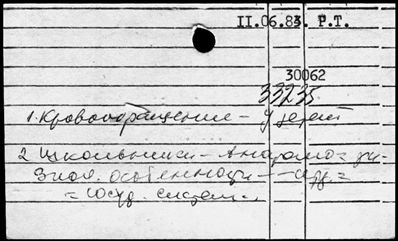 II.06.83. Р.Т.
30062
33235
1. Кровообращение – у детей
2 Школьники – Анатомо= фи-
зиол. особенности – серд.=
= сосуд. систем.